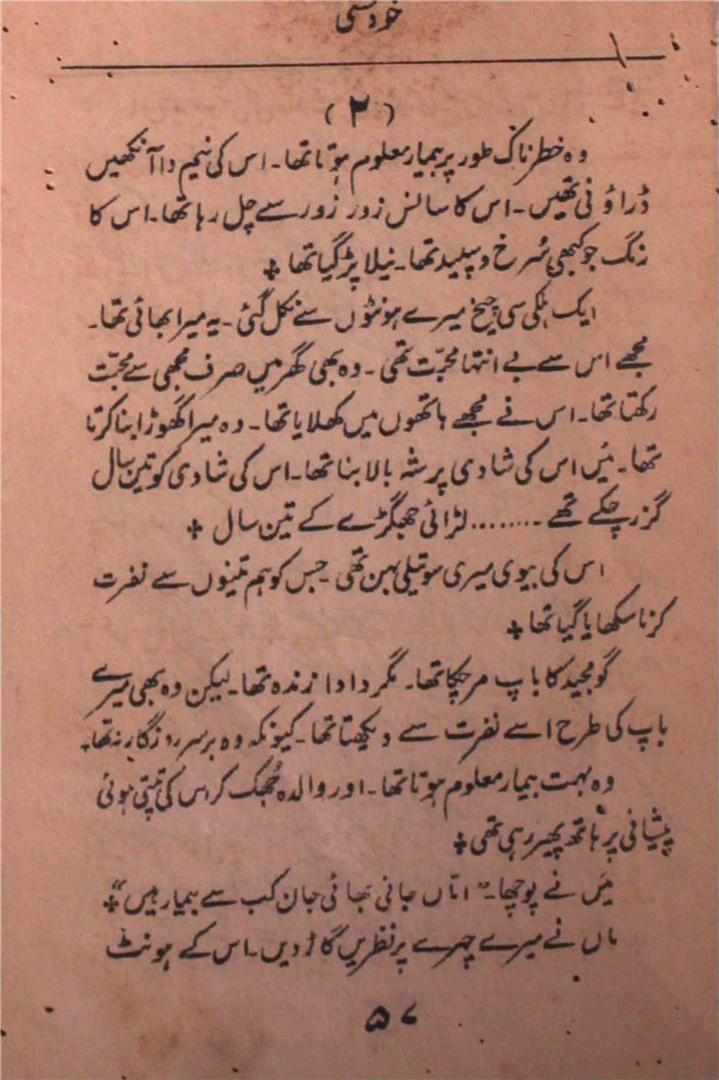 خودکشی
(۲)
وہ خطرناک طور پر بیمار معلوم ہوتا تھا۔ اس کی نیم وا آنکھیں
ڈراؤنی تھیں۔ اس کا سانس زور زور سے چل رہا تھا۔ اس کا
رنگ جو کبھی سُرخ و سپید تھا۔ نیلا پڑ گیا تھا ✤
ایک ہلکی سی چیخ میرے ہونٹوں سے نکل گئی۔ یہ میرا بھائی تھا۔
مجھے اس سے بے انتہا محبّت تھی۔ وہ بھی گھر میں صرف مجھی سے محبّت
رکھتا تھا۔ اس نے مجھے ہاتھوں میں کھلایا تھا۔ وہ میرا گھوڑا بنا کرتا
تھا۔ مَیں اس کی شادی پر شہ بالا بنا تھا۔ اس کی شادی کو تین سال
گزر چکے تھے ۔........ لڑائی جھگڑے کے تین سال ✤
اس کی بیوی میری سوتیلی بہن تھی۔ جس کو ہم تینوں سے نفرت
کرنا سکھایا گیا تھا ✤
گو مجید کا باپ مر چکا تھا۔ مگر دادا زندہ تھا۔ لیکن وہ بھی میرے
باپ کی طرح اسے نفرت سے دیکھتا تھا۔ کیونکہ وہ برسر روزگار نہ تھا۔
وہ بہت بیمار معلوم ہوتا تھا۔ اور والدہ جُھک کر اس کی تپتی ہوئی
پیشانی پر ہاتھ پھیر رہی تھی ✤
مَیں نے پوچھا۔ "اماں جانی بھائی جان کب سے بیمار ہیں" ✤
ماں نے میرے چہرے پر نظریں گاڑ دیں۔ اس کے ہونٹ
۵۷